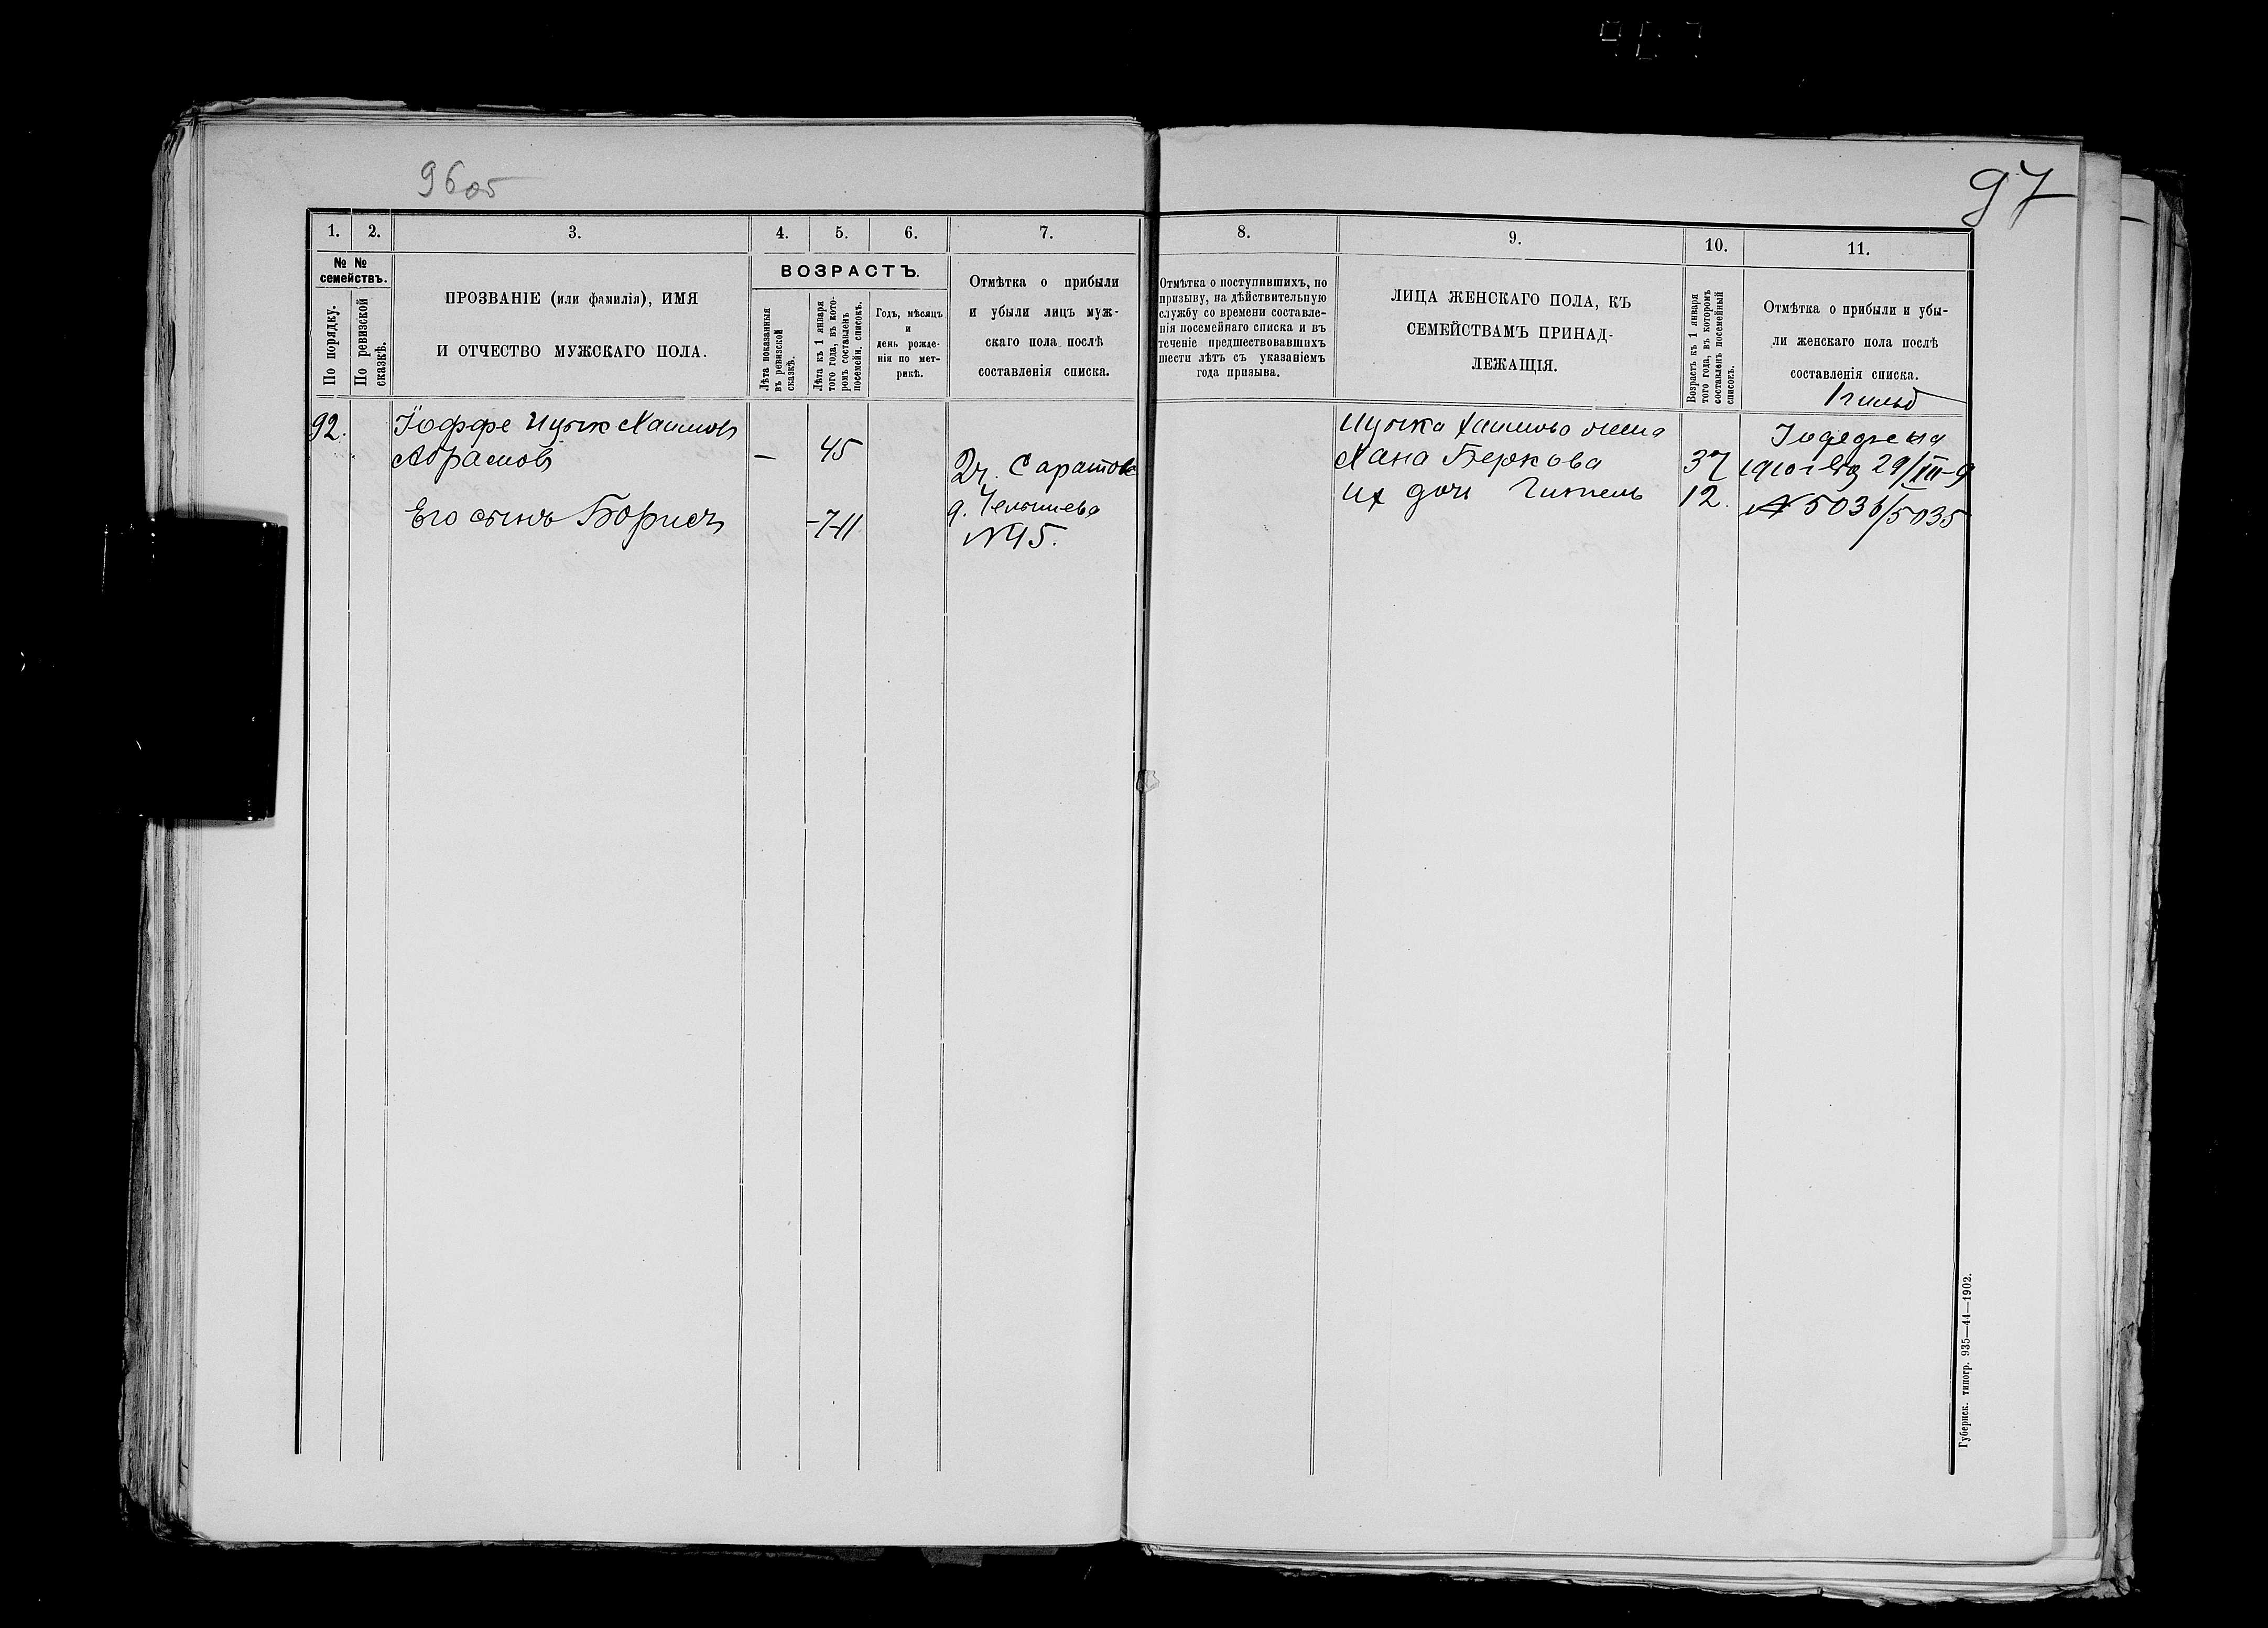 96об
97
1.
2.
3.
4.
5.
6.
7.
8.
9.
10.
11.
№ №
семействъ.
По порядку.
По ревизской
сказкѣ.
ПРОЗВАНІЕ (или фамилія), ИМЯ
И ОТЧЕСТВО МУЖСКАГО ПОЛА.
ВОЗРАСТЪ.
Лѣта показанныя
въ ревизской
сказкѣ.
Лѣта къ 1 января
того года, въ кото-
ромъ составленъ
посемейн. списокъ.
Годъ, мѣсяцъ
и
день рожде-
нія по мет-
рикѣ.
Отмѣтка о прибыли
и убыли лицъ муж-
скаго пола послѣ
составленія списка.
Отмѣтка о поступившихъ, по
призыву, на дѣйствительную
службу со времени составле-
нія посемейнаго списка и въ
теченіе предшествовавшихъ
шести лѣтъ съ указаніемъ
года призыва.
ЛИЦА ЖЕНСКАГО ПОЛА, КЪ
СЕМЕЙСТВАМЪ ПРИНАД-
ЛЕЖАЩІЯ.
Возрастъ къ 1 января
того года, въ которомъ
составленъ посемейный
списокъ.
Отмѣтка о прибыли и убы-
ли женскаго пола послѣ
составленія списка.
1 гильд
92.
Іоффе Ицык Хаимов
Абрамов
— 45
Его сынъ Борисъ
-7-11
Саратов
№ 45.
Ицыка Хаимова жена
Хана Беркова 37
Их дочь Гитель 12.
№ 5036/5035
Губернск. типогр. 935—44—1902.